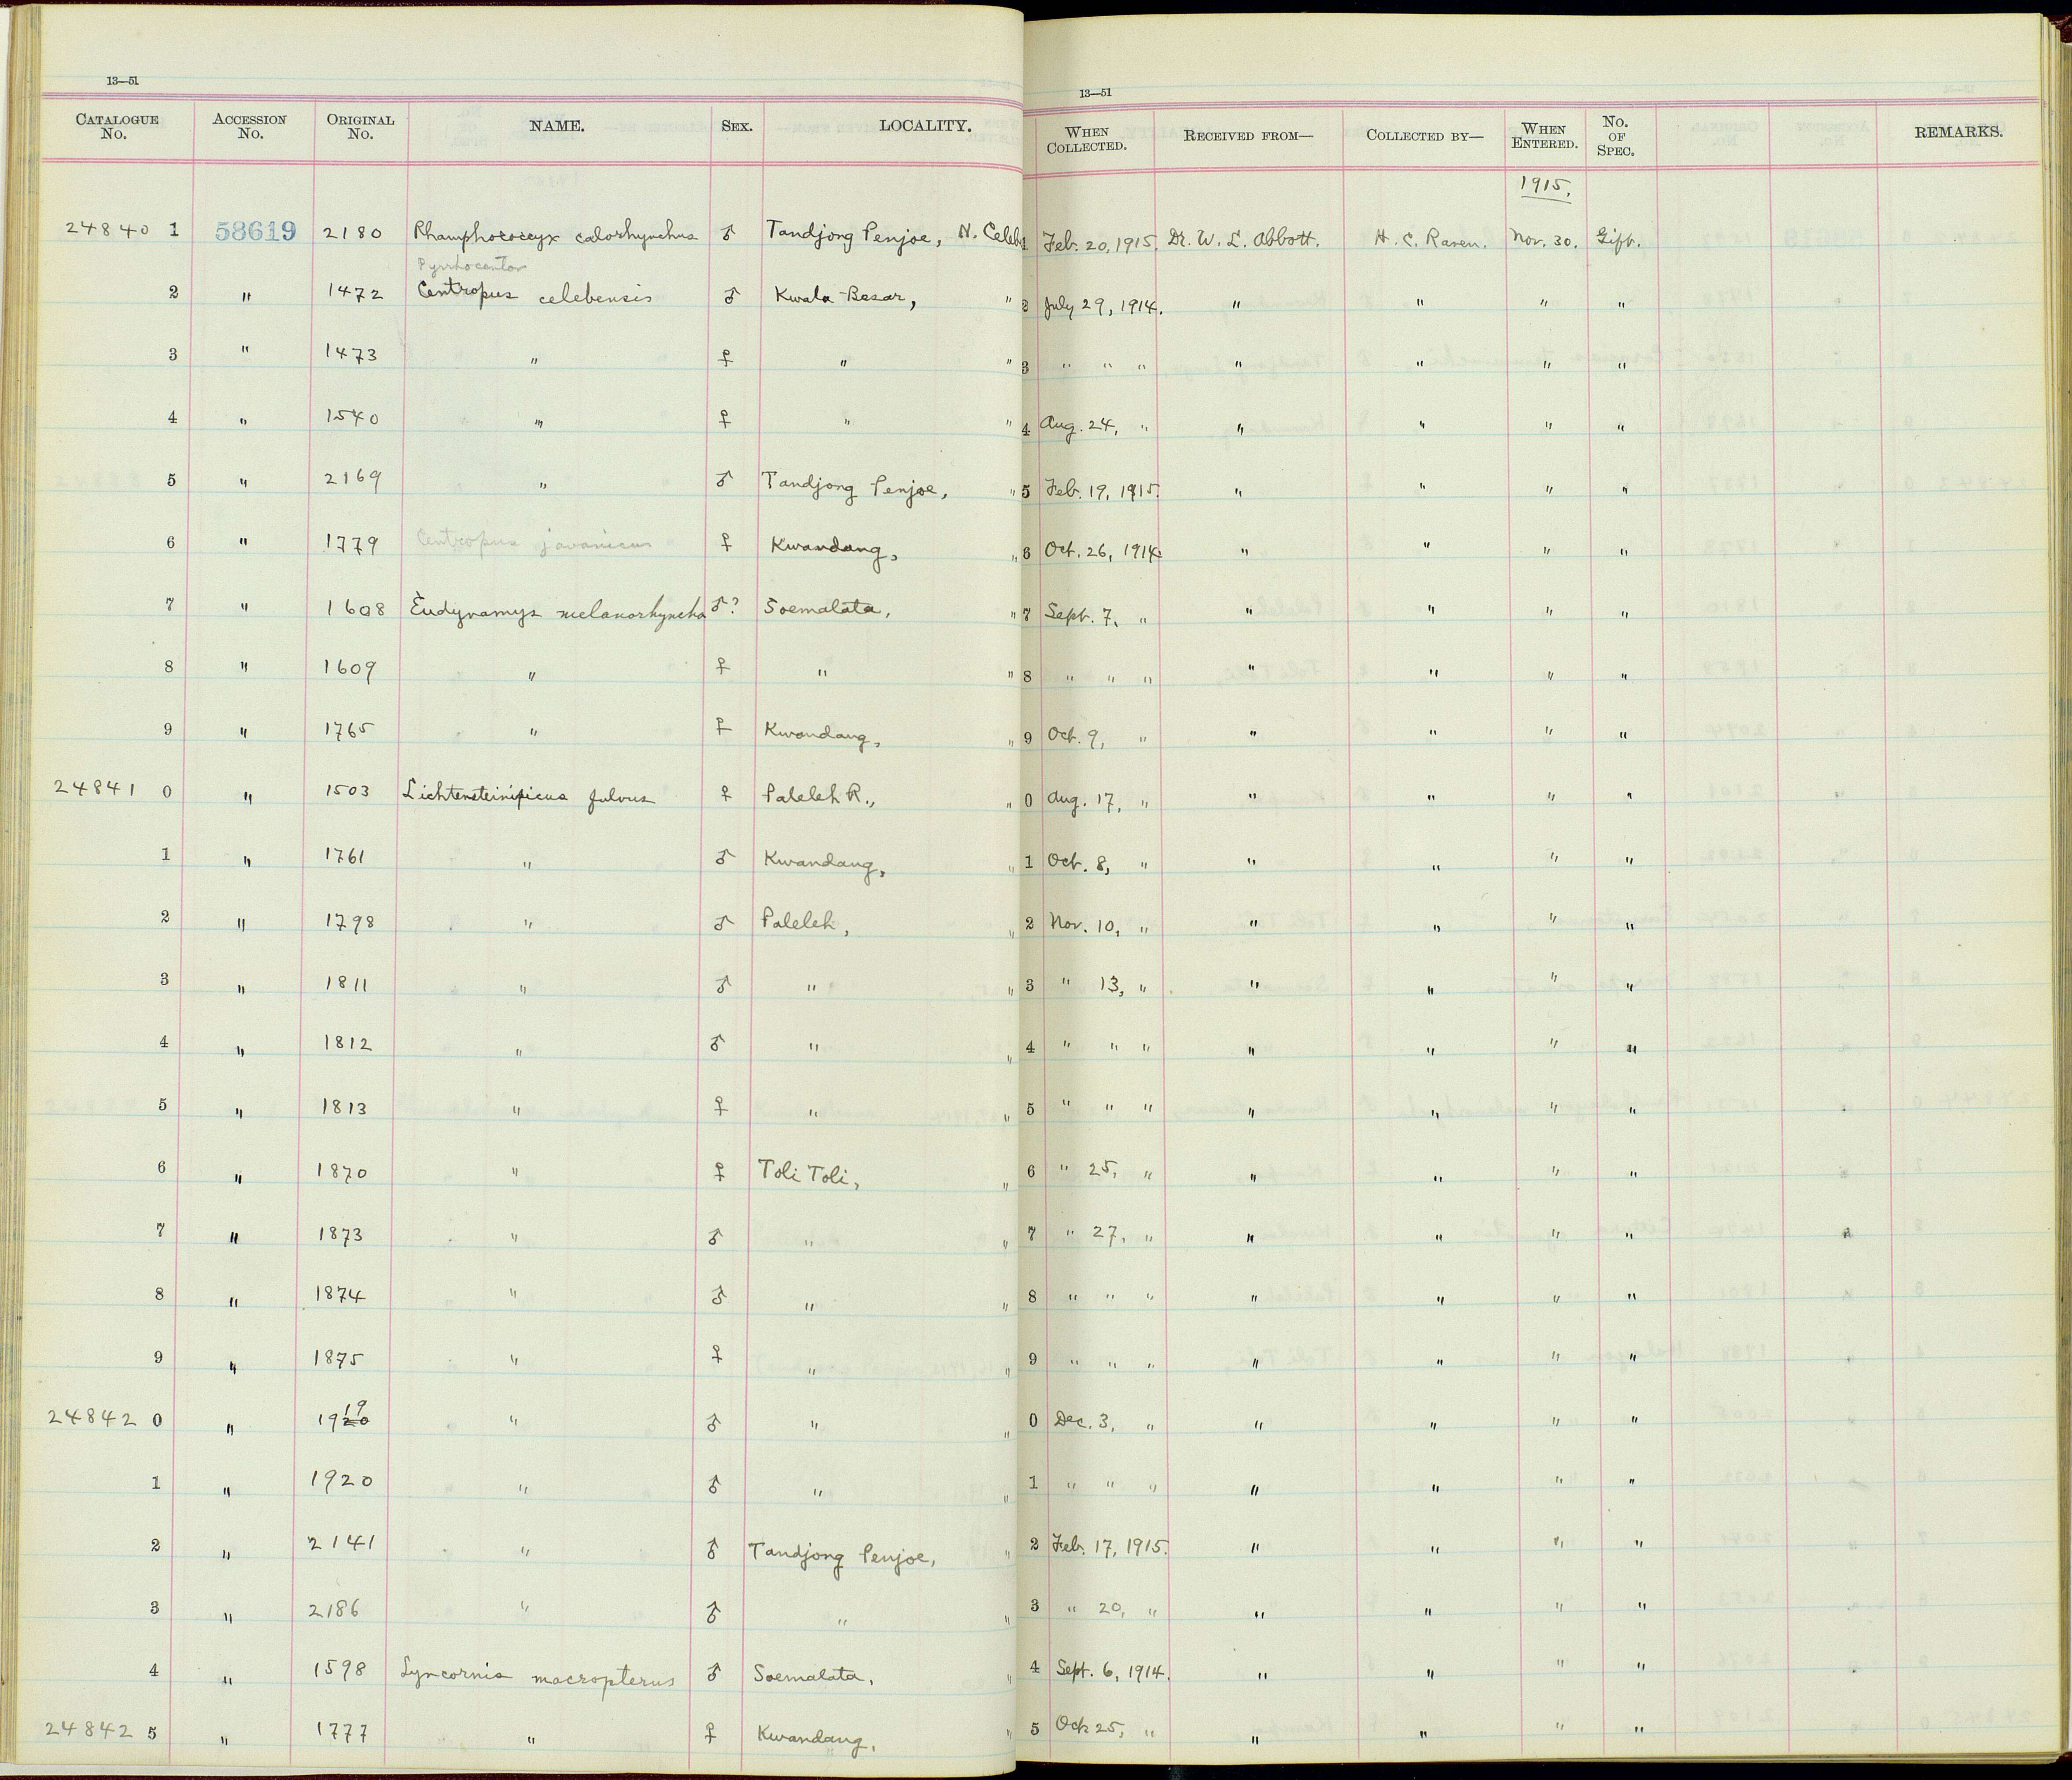 13—51
13—51
CATALOGUE No. ACCESSION No. ORIGINAL No. NAME. SEX. LOCALITY. WHEN COLLECTED. RECEIVED FROM— COLLECTED BY— WHEN ENTERED. No. OF SPEC. REMARKS.
1915.
24840 1 58619 2180 Rhamphococcyx calorhynchus ♂ Tandjong Penjoe, N. Celeb 1 Feb. 20, 1915. Dr. W. L. Abbott. H. C. Raven. Nov. 30. Gift.
Pyrrhocentor
2 " 1472 Centropus celebensis ♂ Kwala Besar, " 2 July 29, 1914. " " " "
3 " 1473 " ♀ " " 3 " " " " " " "
4 " 1540 " ♀ " " 4 Aug. 24, " " " " "
5 " 2169 " ♂ Tandjong Penjoe, " 5 Feb. 19, 1915. " " " "
6 " 1779 Centropus javanicus ♀ Kwandang, " 6 Oct. 26, 1914. " " " "
7 " 1608 Eudynamys melanorhyncha ♂? Soemalata, " 7 Sept. 7, " " " " "
8 " 1609 " ♀ " " 8 " " " " " " "
9 " 1765 " ♀ Kwandang, " 9 Oct. 9, " " " " "
24841 0 " 1503 Lichtensteinipicus fulvus ♀ Paleleh R., " 0 Aug. 17, " " " " "
1 " 1761 " ♂ Kwandang, " 1 Oct. 8, " " " " "
2 " 1798 " ♂ Paleleh, " 2 Nov. 10, " " " " "
3 " 1811 " ♂ " " 3 " 13, " " " " "
4 " 1812 " ♂ " " 4 " " " " " " "
5 " 1813 " ♀ " " 5 " " " " " " "
6 " 1870 " ♀ Toli Toli, " 6 " 25, " " " " "
7 " 1873 " ♂ " " 7 " 27, " " " " "
8 " 1874 " ♂ " " 8 " " " " " " "
9 " 1875 " ♀ " " 9 " " " " " " "
24842 0 " 1920 19 " ♂ " " 0 Dec. 3, " " " " "
1 " 1920 " ♂ " " 1 " " " " " " "
2 " 2141 " ♂ Tandjong Penjoe, " 2 Feb. 17, 1915. " " " "
3 " 2186 " ♂ " " 3 " 20, " " " " "
4 " 1598 Lyncornis macropterus ♂ Soemalata, " 4 Sept. 6, 1914. " " " "
24842 5 " 1777 " ♀ Kwandang, " 5 Oct 25, " " " " "